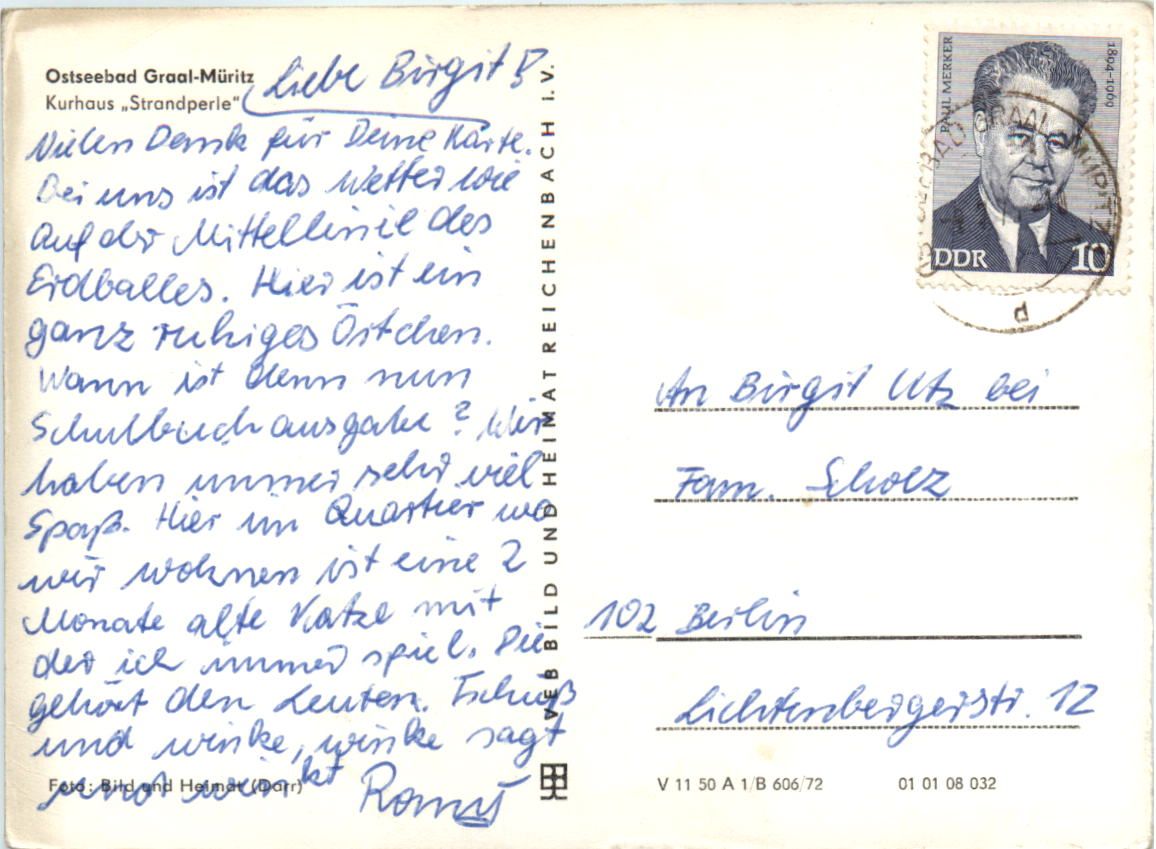 Ostseebad Graal-Müritz
Kurhaus „Strandperle“
Liebe Birgit!
Vielen Dank für Deine Karte.
Bei uns ist das Wetter wie
auf der Mittellinie des
Erdballes. Hier ist ein
ganz ruhiges Örtchen.
Wann ist denn nun
Schulbuchausgabe? Wir
haben immer sehr viel
Spaß. Hier im Quartier wo
wir wohnen ist eine 2
Monate alte Katze mit
der ich immer spiel. Die
gehört den Leuten. Tschüß
und winke, winke sagt
und winkt
Foto: Bild und Heimat (Darr)
VEB BILD UND HEIMAT REICHENBACH I. V.
PAUL MERKER
1894-1969
DDR 10
GRAAL-MÜRITZ
d
An Birgit Utz bei
Fam. Scholz
102 Berlin
Lichtenbergerstr. 12
V 11 50 A 1/B 606/72
01 01 08 032